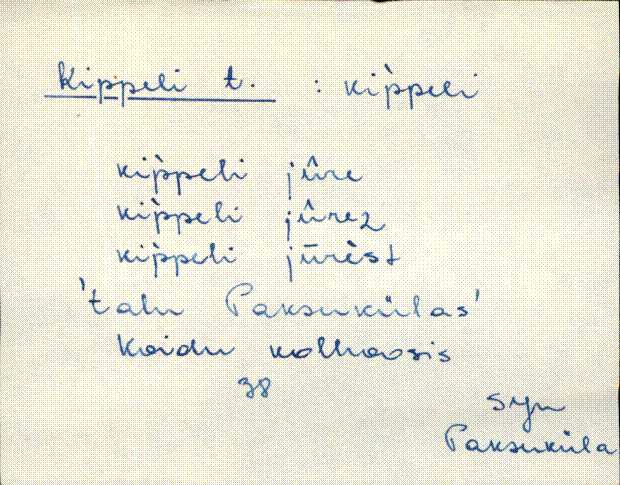 Kippeli t. : kip̀peli
kip̀peli jûre
kip̀peli jûrez
kip̀peli jūrèst
'talu Paksukülas'
Koidu kolhoosis
38
Syn
Paksuküla